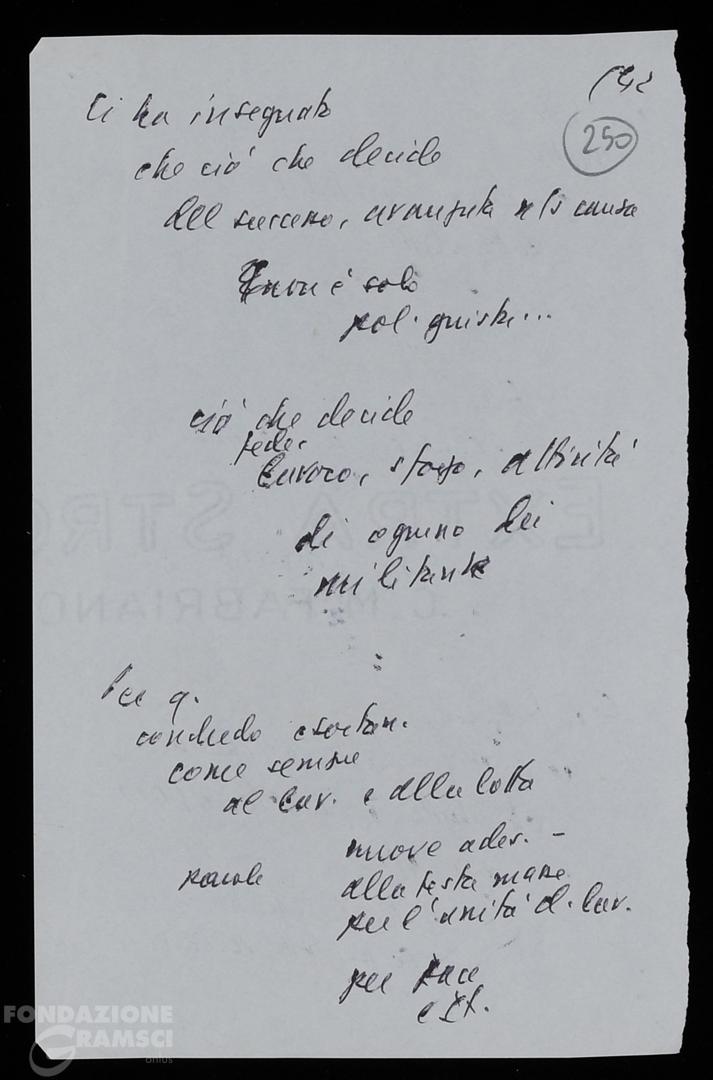 250
Ci ha insegnato
che ciò che decide
del successo, avanzata n/s causa
non è solo
pol. giusta...
ciò che decide
fede,
lavoro, sforzo, attività
di ognuno dei
militanti
EXTRA STRO
C. M. FABRIANO
Per q.
concludo esortan.
come sempre
al lav. e alla lotta
nuove ades. -
parole
alla testa masse
per l'unità d. lav.
per pace
e
FONDAZIONE
GRAMSCI
onlus